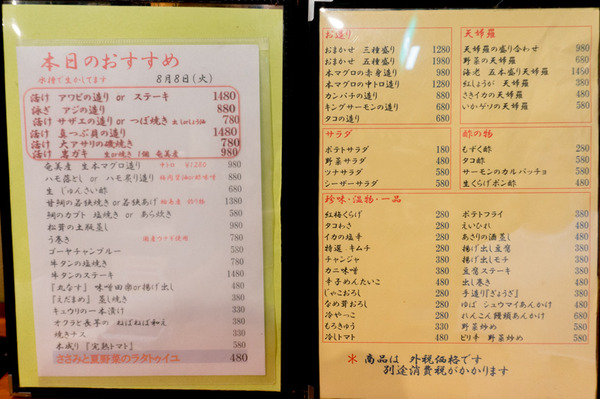 本日のおすすめ
水槽で生かしてます
8月8日(火)
活け アワビの造り or ステーキ 1480
泳ぎ アジの造り 880
活け サザエの造り or つぼ焼き 780
活け 真つぶ貝の造り 1480
活け 大アサリの磯焼き 780
活け 岩ガキ 生or焼き 1個 奄美産 980
奄美産 生本マグロ造り 980
ハモ落とし or ハモ炙り造り 880
生 じゅんさい酢 680
甘鯛の若狭焼き or 若狭あげ 980
鯛のカブト 塩焼き or あら炊き 580
松茸の土瓶蒸し 980
う巻き 国産ウナギ使用 780
ゴーヤチャンプルー 580
牛タンの塩焼き 780
牛タンのステーキ 1480
『丸なす』 味噌田楽or揚げ出し 480
『えだまめ』 蒸し焼き 380
キュウリの一本漬け 330
オクラと長芋の ねばねば和え 380
焼きナス 330
木成り 『完熟トマト』 580
ささみと夏野菜のラタトゥイユ 480
お造り
おまかせ 三種盛り 1280
おまかせ 五種盛り 1980
本マグロの赤身造り 980
本マグロの中トロ造り 1280
カンパチの造り 880
キングサーモンの造り 880
タコの造り 680
サラダ
ポテトサラダ 180
野菜サラダ 480
ツナサラダ 580
シーザーサラダ 580
天婦羅
天婦羅の盛り合わせ 980
野菜の天婦羅 580
海老 五本盛り天婦羅 1450
紅しょうが 天婦羅 380
さきイカの天婦羅 380
いかゲソの天婦羅 580
酢の物
もずく酢 380
タコ酢 580
サーモンのカルパッチョ 580
生くらげポン酢 480
珍味・温物・一品
紅梅くらげ 280
タコわさ 280
イカの塩辛 280
特選 キムチ 280
チャンジャ 380
カニ味噌 380
辛子めんたいこ 480
じゃこおろし 280
なめ茸おろし 280
冷やっこ 280
もろきゅう 330
冷しトマト 480
ポテトフライ 380
えいひれ 480
あさりの酒蒸し 480
揚げ出し豆腐 380
揚げ出しモチ 380
豆腐ステーキ 380
出し巻き 480
手造り『ぎょうざ』 380
ゆば シュウマイあんかけ 480
れんこん饅頭あんかけ 680
野菜炒め 580
ピリ辛 野菜炒め 580
* 商品は 外税価格です
別途消費税がかかります